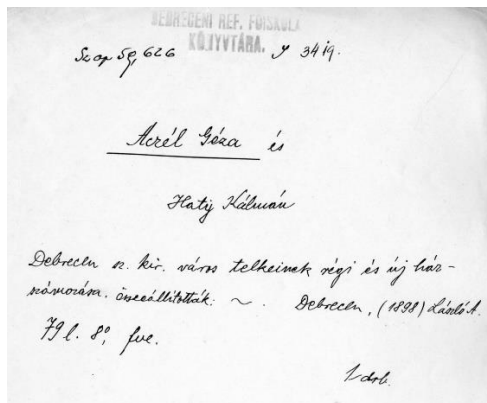 DEBRECENI REF. FŐISKOLA
KÖNYVTÁRA.
Szop 59, 626 3419.
Aczél Géza és
Haty Kálmán
Debrecen sz. kir. város telkeinek régi és új ház-
számozása. összeállították: ~. Debrecen, (1898) László A.
79 l. 8°, fve.
1 drb.